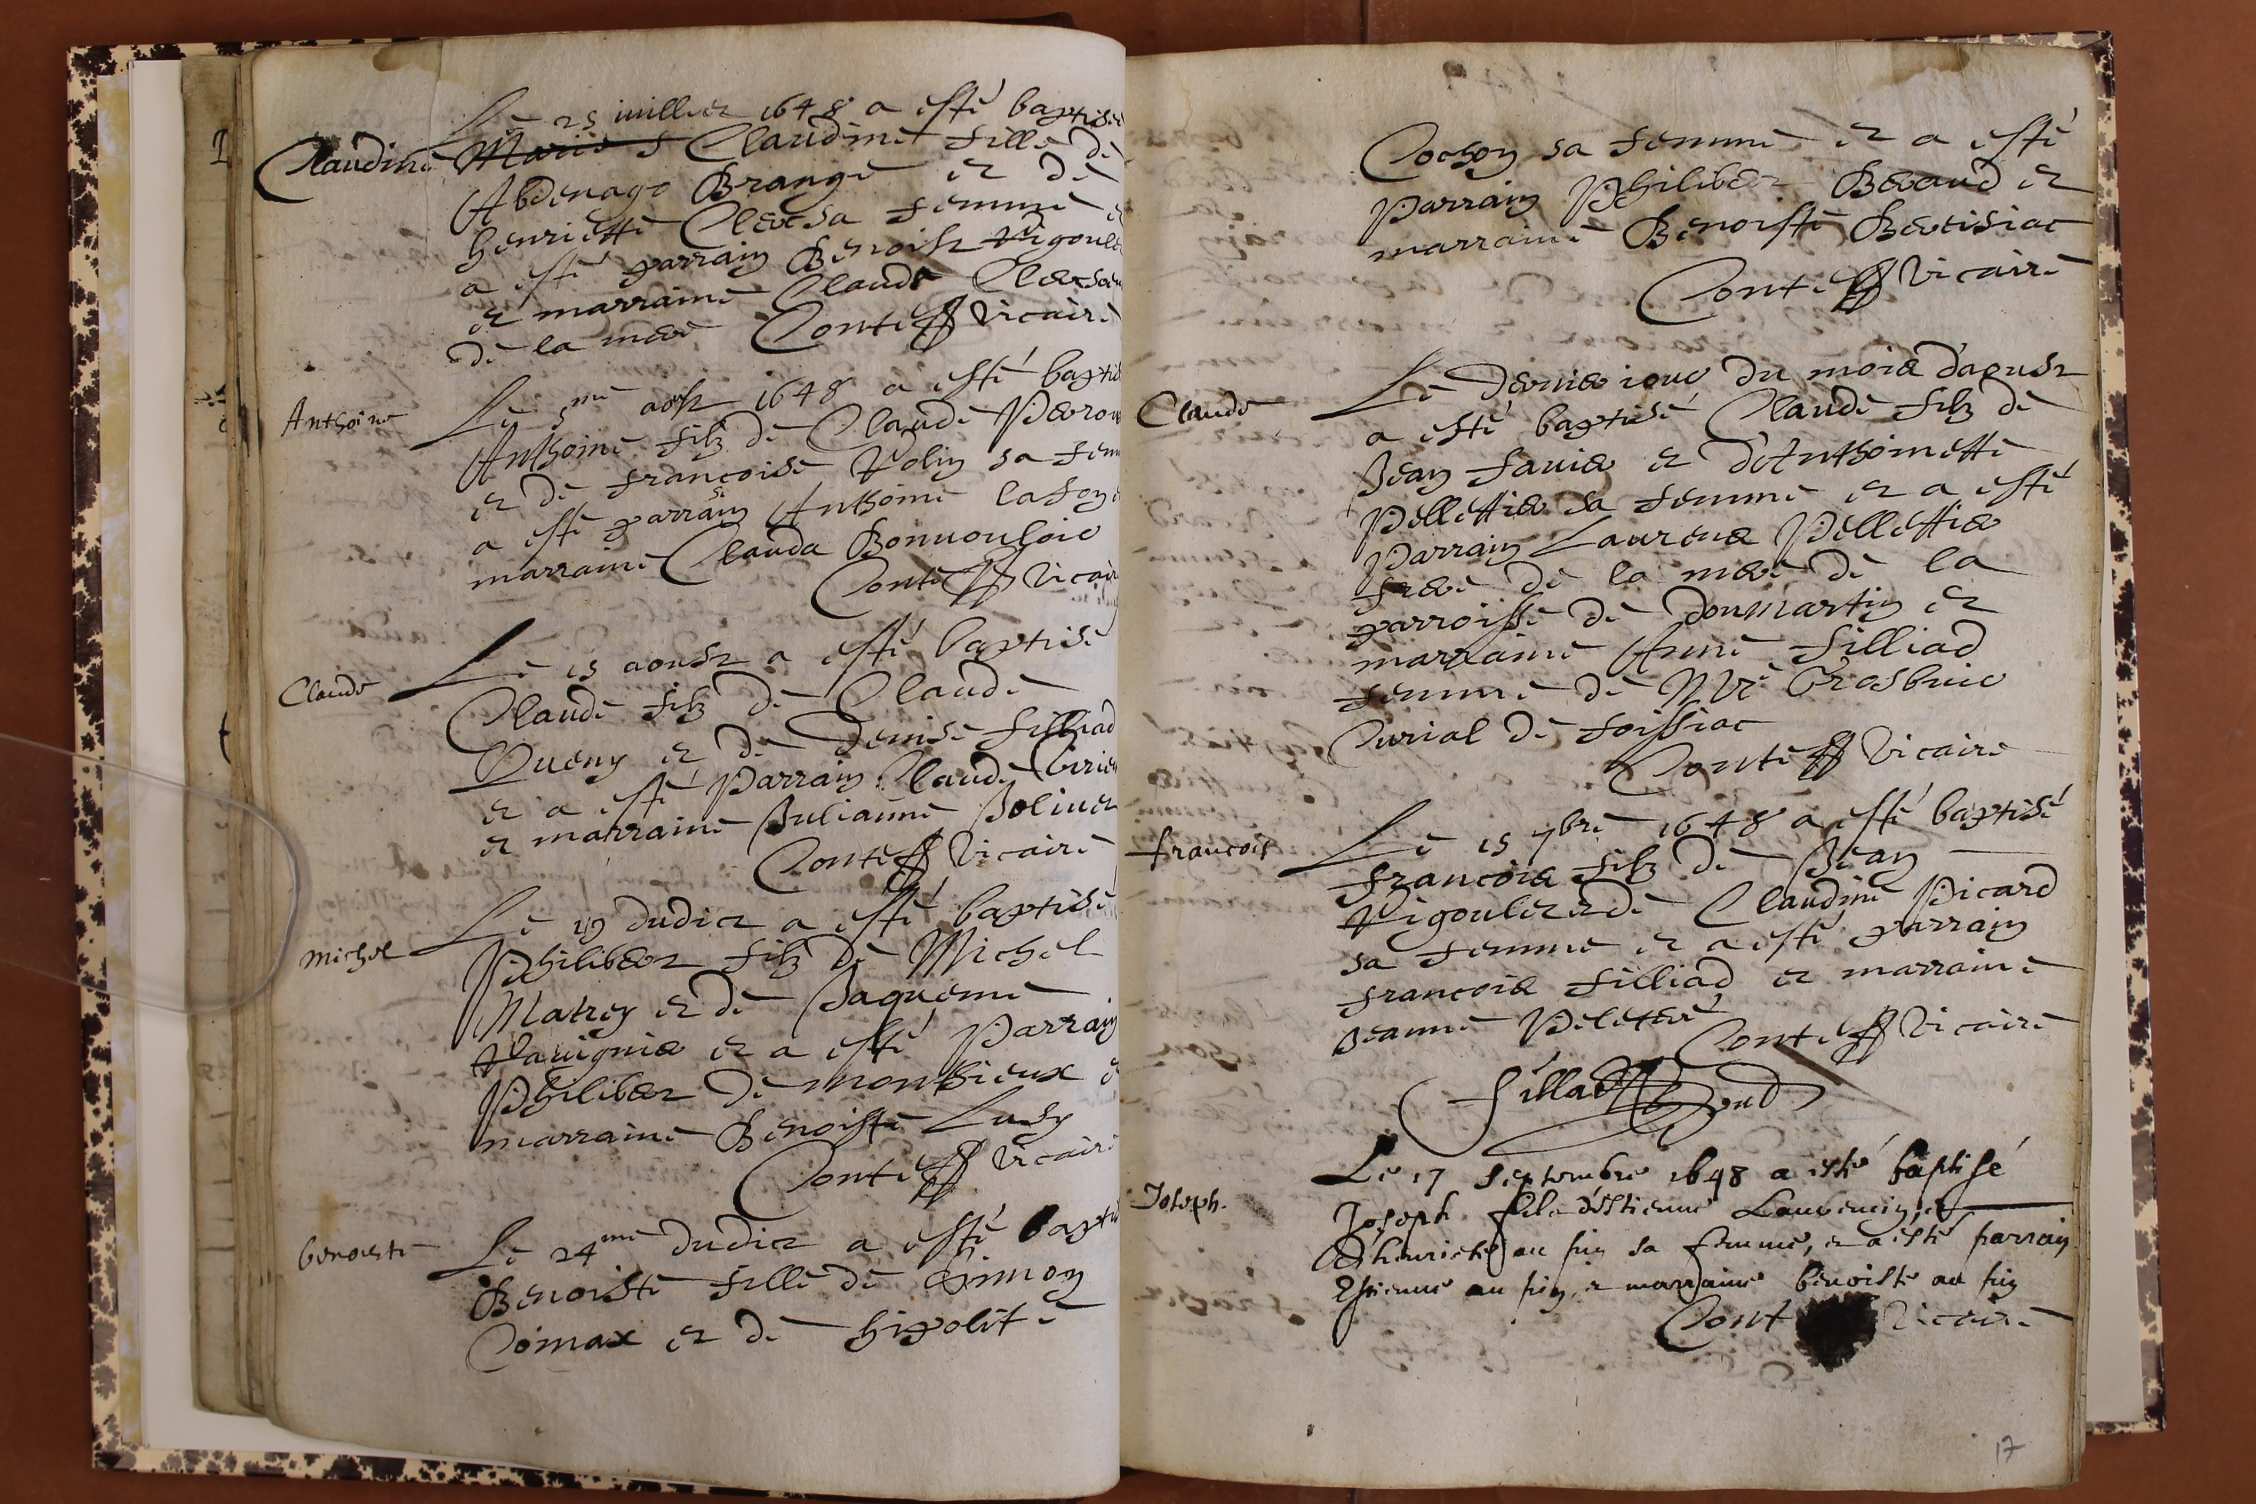 Le 25 iuillet 1648 a esté baptisée
Claudine
Claudine fille de
Abdenago Brange et de
henriette Clerc sa femme et
a esté parrain Benoist Rigoulet
et marraine Claude Clerc soeur
de la mere Conte Vicaire
Anthoine
Le 5me aost 1648 a esté baptisé
Anthoine filz de Claude Peron
et de francoise Volin sa femme
a esté parrain Anthoine lafon
marraine Clauda Bonuouloir
Conte Vicaire
Claude
Le 15 aoust a esté baptisé
Claude filz de Claude
Queny et de Denise filliad
et a esté Parrain Claude
et marraine Julianne Joliuet
Conte Vicaire
michel
Le 19 dudict a esté baptisé
Philibert filz de Michel
Matrey et de Jaquemine
et a esté Parrain
Philiber de monsieux et
marraine Benoiste Lusy
Conte Vicaire
benoiste
Le 24me dudict a esté bapti
Benoiste fille de Simon
Comax et de hipolite
Cochon sa femme et a esté
Parrain Philiber Beraud et
marraine Benoiste Bertisiac
Conte Vicaire
Claude
Le dernier iour du mois d'aoust
a esté baptisé Claude filz de
Jean fauier et d'Anthoinette
Pellettier sa femme et a esté
Parrain Laurens Pellettier
frere de la mere de la
parroisse de donmartin et
marraine Anne filliad
femme de Mre Grosbuis
Curial de foissiac
Conte Vicaire
francois
Le 15 7bre 1648 a esté baptisé
francois filz de Jean
Rigoulet et de Claudine Picard
sa femme et a esté parrain
francois filliad et marraine
Jeanne Peletere
Conte Vicaire
fillad
Joseph.
Le 17 septembre 1648 a esté baptisé
Joseph fils d'Estienne Laurencin et
d'henriete au fin sa femme, et a esté parrain
Estienne au fin, et marraine benoiste au fin
Cont Vicaire
17